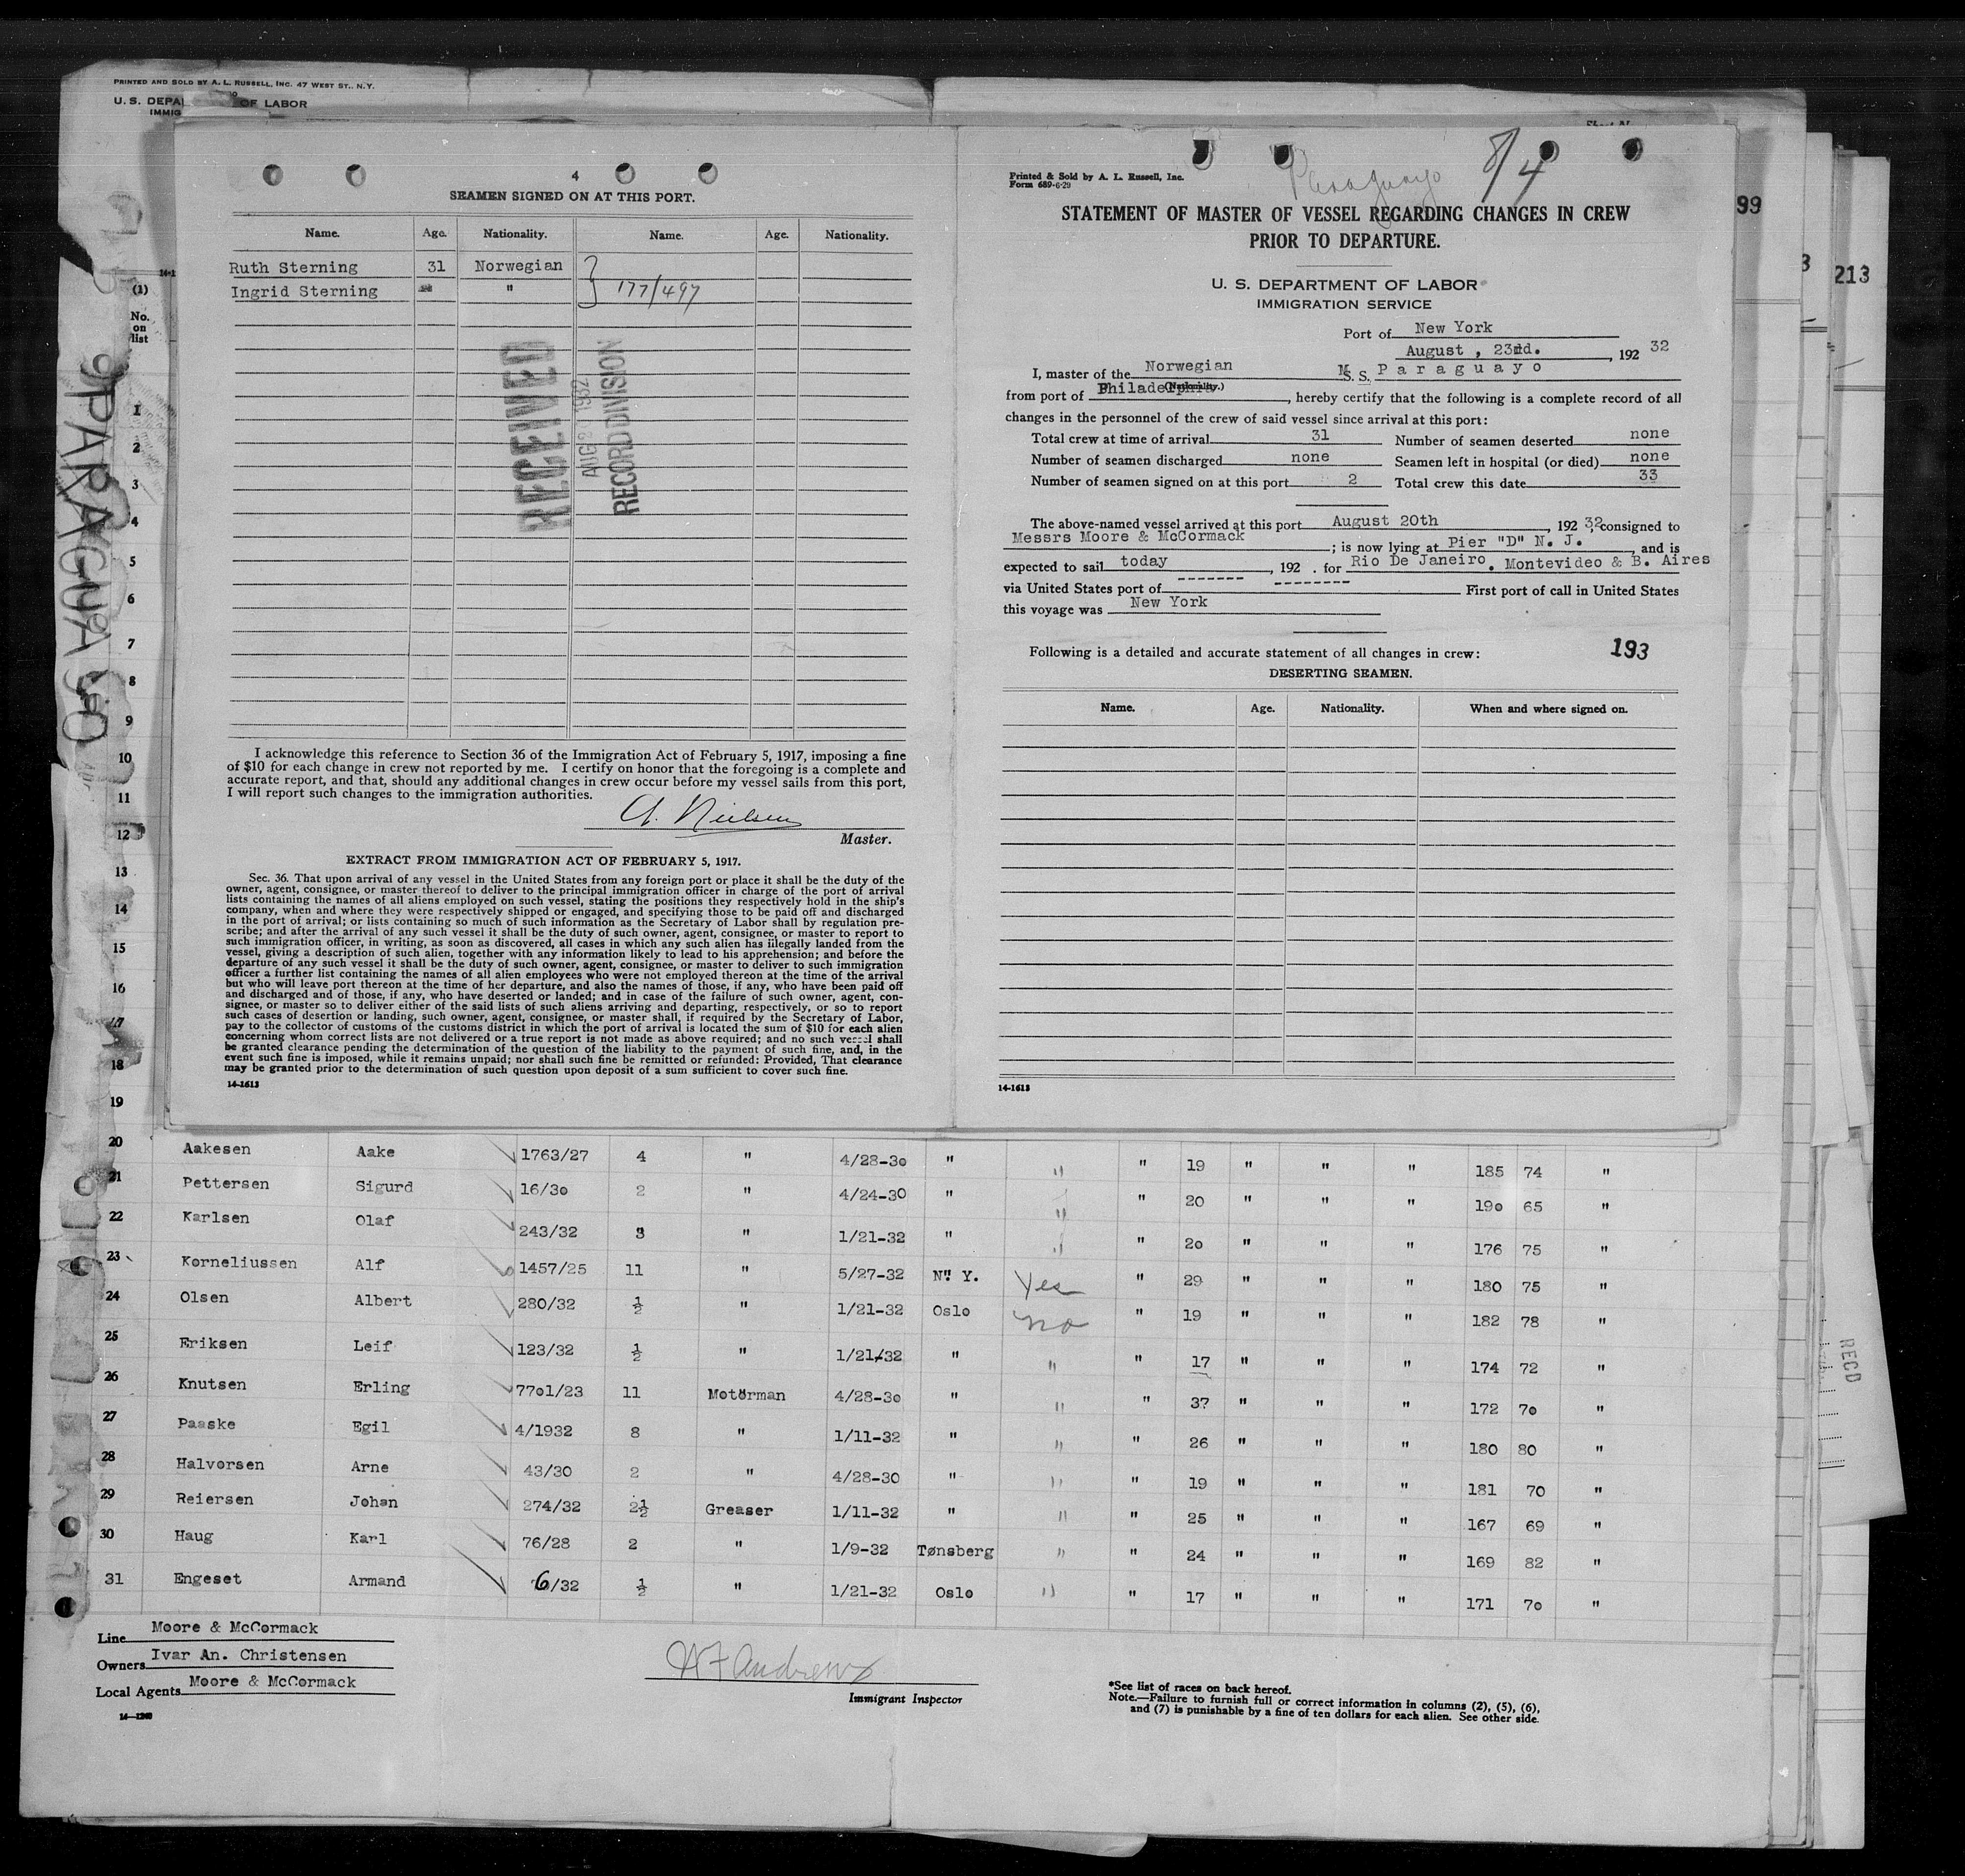 PRINTED AND SOLD BY A. L. RUSSELL, INC. 47 WEST ST., N.Y.
U. S. DEPA OF LABOR
IMMIG
99
3
213
14-1
(1)
No.
on
list
PARAGUAYO
4
SEAMEN SIGNED ON AT THIS PORT.
Name. Age. Nationality. Name. Age. Nationality.
Ruth Sterning 31 Norwegian
Ingrid Sterning " 177/497
RECEIVED
AUG 2 1932
RECORD DIVISION
I acknowledge this reference to Section 36 of the Immigration Act of February 5, 1917, imposing a fine
of $10 for each change in crew not reported by me. I certify on honor that the foregoing is a complete and
accurate report, and that, should any additional changes in crew occur before my vessel sails from this port,
I will report such changes to the immigration authorities.
A. Nielsen
Master.
EXTRACT FROM IMMIGRATION ACT OF FEBRUARY 5, 1917.
Sec. 36. That upon arrival of any vessel in the United States from any foreign port or place it shall be the duty of the
owner, agent, consignee, or master thereof to deliver to the principal immigration officer in charge of the port of arrival
lists containing the names of all aliens employed on such vessel, stating the positions they respectively hold in the ship's
company, when and where they were respectively shipped or engaged, and specifying those to be paid off and discharged
in the port of arrival; or lists containing so much of such information as the Secretary of Labor shall by regulation pre-
scribe; and after the arrival of any such vessel it shall be the duty of such owner, agent, consignee, or master to report to
such immigration officer, in writing, as soon as discovered, all cases in which any such alien has illegally landed from the
vessel, giving a description of such alien, together with any information likely to lead to his apprehension; and before the
departure of any such vessel it shall be the duty of such owner, agent, consignee, or master to deliver to such immigration
officer a further list containing the names of all alien employees who were not employed thereon at the time of the arrival
but who will leave port thereon at the time of her departure, and also the names of those, if any, who have been paid off
and discharged and of those, if any, who have deserted or landed; and in case of the failure of such owner, agent, con-
signee, or master so to deliver either of the said lists of such aliens arriving and departing, respectively, or so to report
such cases of desertion or landing, such owner, agent, consignee, or master shall, if required by the Secretary of Labor,
pay to the collector of customs of the customs district in which the port of arrival is located the sum of $10 for each alien
concerning whom correct lists are not delivered or a true report is not made as above required; and no such vessel shall
be granted clearance pending the determination of the question of the liability to the payment of such fine, and, in the
event such fine is imposed, while it remains unpaid; nor shall such fine be remitted or refunded: Provided, That clearance
may be granted prior to the determination of such question upon deposit of a sum sufficient to cover such fine.
14-1613
Printed & Sold by A. L. Russell, Inc.
Form 689-6-29
Paraguayo 8/4
STATEMENT OF MASTER OF VESSEL REGARDING CHANGES IN CREW
PRIOR TO DEPARTURE.
U. S. DEPARTMENT OF LABOR
IMMIGRATION SERVICE
Port of New York
August , 23rd. , 192 32
I, master of the Norwegian M S. S. Paraguayo
(Nationality.)
from port of Philadelphia, hereby certify that the following is a complete record of all
changes in the personnel of the crew of said vessel since arrival at this port:
Total crew at time of arrival 31 Number of seamen deserted none
Number of seamen discharged none Seamen left in hospital (or died) none
Number of seamen signed on at this port 2 Total crew this date 33
The above-named vessel arrived at this port August 20th , 192 32, consigned to
Messrs Moore & McCormack ; is now lying at Pier "D" N. J. , and is
expected to sail today , 192 . for Rio De Janeiro. Montevideo & B. Aires
via United States port of ------- -------- First port of call in United States
this voyage was New York
Following is a detailed and accurate statement of all changes in crew: 193
DESERTING SEAMEN.
Name. Age. Nationality. When and where signed on.
14-1613
1
2
3
4
5
6
7
8
9
10
11
12
13
14
15
16
17
18
19
20 Aakesen Aake 1763/27 4 " 4/28-30 " " " 19 " " " 185 74 "
21 Pettersen Sigurd 16/30 2 " 4/24-30 " " " 20 " " " 190 65 "
22 Karlsen Olaf 243/32 3 " 1/21-32 " " " 20 " " " 176 75 "
23 Korneliussen Alf 1457/25 11 " 5/27-32 N. Y. Yes " 29 " " " 180 75 "
24 Olsen Albert 280/32 ½ " 1/21-32 Oslo no " 19 " " " 182 78 "
25 Eriksen Leif 123/32 ½ " 1/21-32 " " " 17 " " " 174 72 "
26 Knutsen Erling 7701/23 11 Motorman 4/28-30 " " " 37 " " " 172 70 "
27 Paaske Egil 4/1932 8 " 1/11-32 " " " 26 " " " 180 80 "
28 Halvorsen Arne 43/30 2 " 4/28-30 " " " 19 " " " 181 70 "
29 Reiersen Johan 274/32 2½ Greaser 1/11-32 " " " 25 " " " 167 69 "
30 Haug Karl 76/28 2 " 1/9-32 Tønsberg " " 24 " " " 169 82 "
31 Engeset Armand 6/32 ½ " 1/21-32 Oslo " " 17 " " " 171 70 "
Line Moore & McCormack
Owners Ivar An. Christensen
Local Agents Moore & McCormack
14-1240
Andrews
Immigrant Inspector
*See list of races on back hereof.
Note.—Failure to furnish full or correct information in columns (2), (5), (6),
and (7) is punishable by a fine of ten dollars for each alien. See other side.
RECD